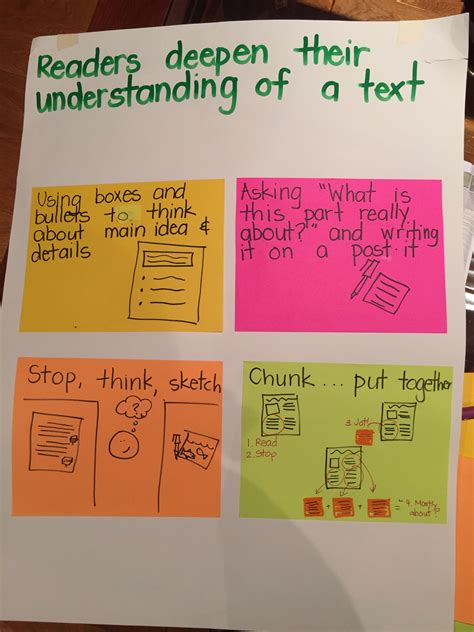 Readers deepen their
understanding of a text
Using boxes and
bullets to think
about main idea &
details
Asking "What is
this part really
about?" and writing
it on a post-it
Stop, think, sketch
Chunk ... put together
1. Read
2. Stop
3. Jot!
+ + = "4. Mostly
about?